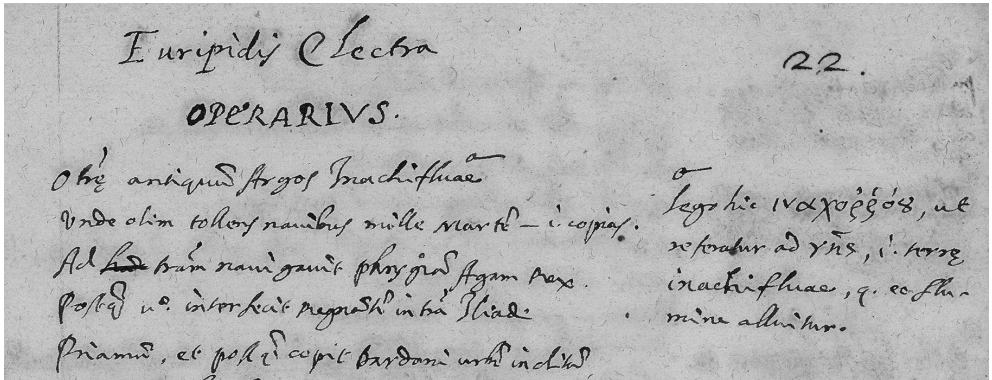 Euripidis Electra
22.
OPERARIVS.
O trę antiquũ Argos Inachifluae
Vnde olim tollens nauibus mille Martẽ – i. copias.
Ad trãm nauigauit phrygiã Agam Rex.
Postq̃ uº. interfecit regnãtẽ in trã Iliad.
Priamũ, et postq̃ cepit Dardani urbẽ inclitã,
a
lego hic ιναχορρόου, ut
referatur ad γῆς, i. terrę
inachifluae, q. eo flu-
mine alluitur.